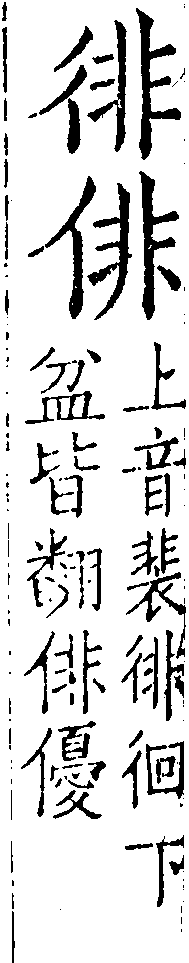 徘俳
上音裴徘徊下
盆皆翻俳優